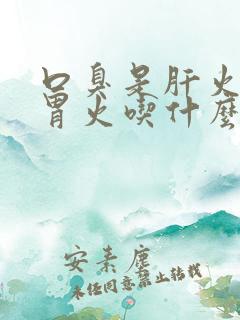 口臭是肝火
胃火喫什麽
安素塵
未经同意禁止转载